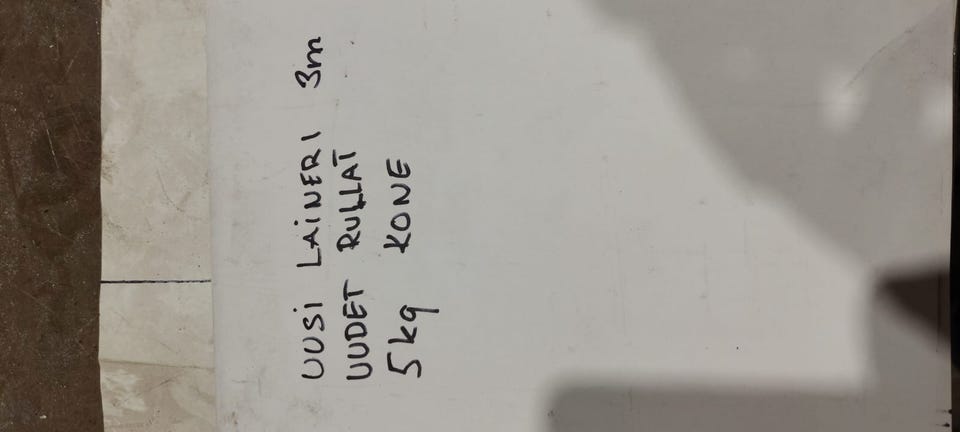 UUSI LAiNERI 3m
UUDET RULLAT
5kg KONE